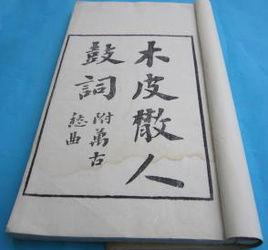 木皮散人
鼓詞
附萬古
愁曲